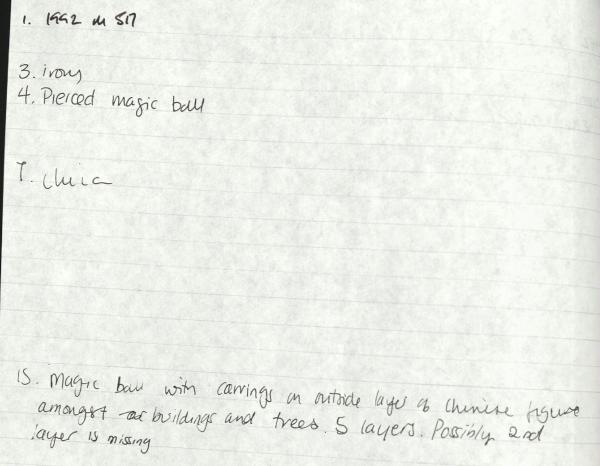 1. 1992 M 517
3. ivory
4. Pierced magic ball
7. China
15. Magic ball with carvings on outside layer of Chinese figure
amongst buildings and trees. 5 layers. Possibly 2nd
layer is missing